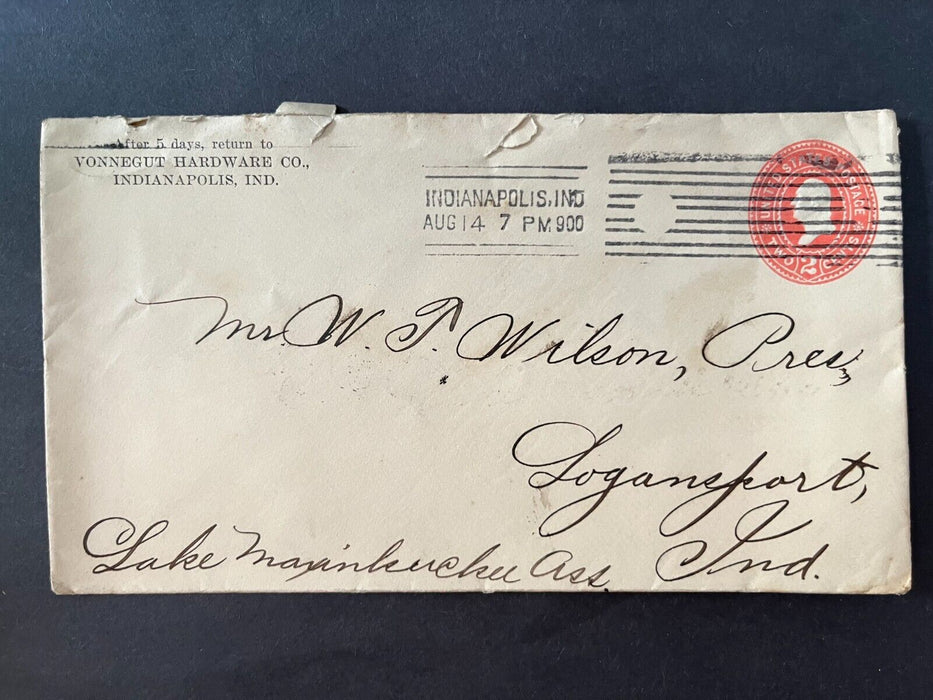 After 5 days, return to
VONNEGUT HARDWARE CO.,
INDIANAPOLIS, IND.
INDIANAPOLIS, IND
AUG 14 7 PM 900
UNITED STATES POSTAGE
TWO 2 CENTS
Mr. W. T. Wilson, Pres,
Logansport,
Ind.
Lake Maxinkuckee Ass.